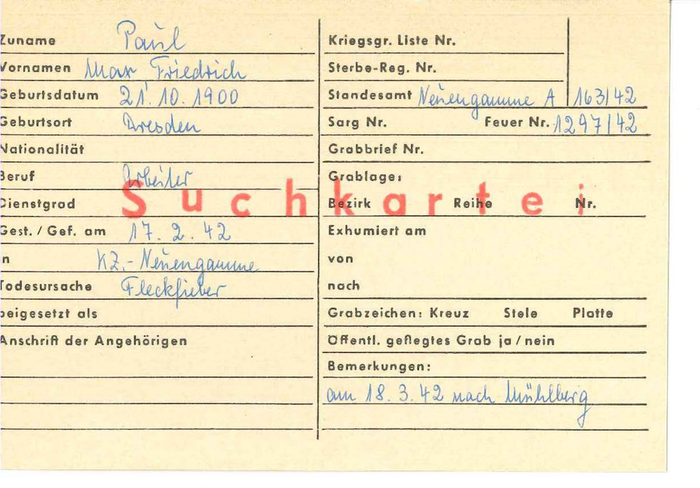 Zuname Paul
Vornamen Max Friedrich
Geburtsdatum 21. 10. 1900
Geburtsort Dresden
Nationalität
Beruf Arbeiter
Dienstgrad
Gest. / Gef. am 17. 2. 42
in KZ.-Neuengamme
Todesursache Fleckfieber
beigesetzt als
Anschrift der Angehörigen
Suchkartei
Kriegsgr. Liste Nr.
Sterbe-Reg. Nr.
Standesamt Neuengamme A 163/42
Sarg Nr. Feuer Nr. 1297/42
Grabbrief Nr.
Grablage:
Bezirk Reihe Nr.
Exhumiert am
von
nach
Grabzeichen: Kreuz Stele Platte
Öffentl. geflegtes Grab ja / nein
Bemerkungen:
am 18. 3. 42 nach Mühlberg